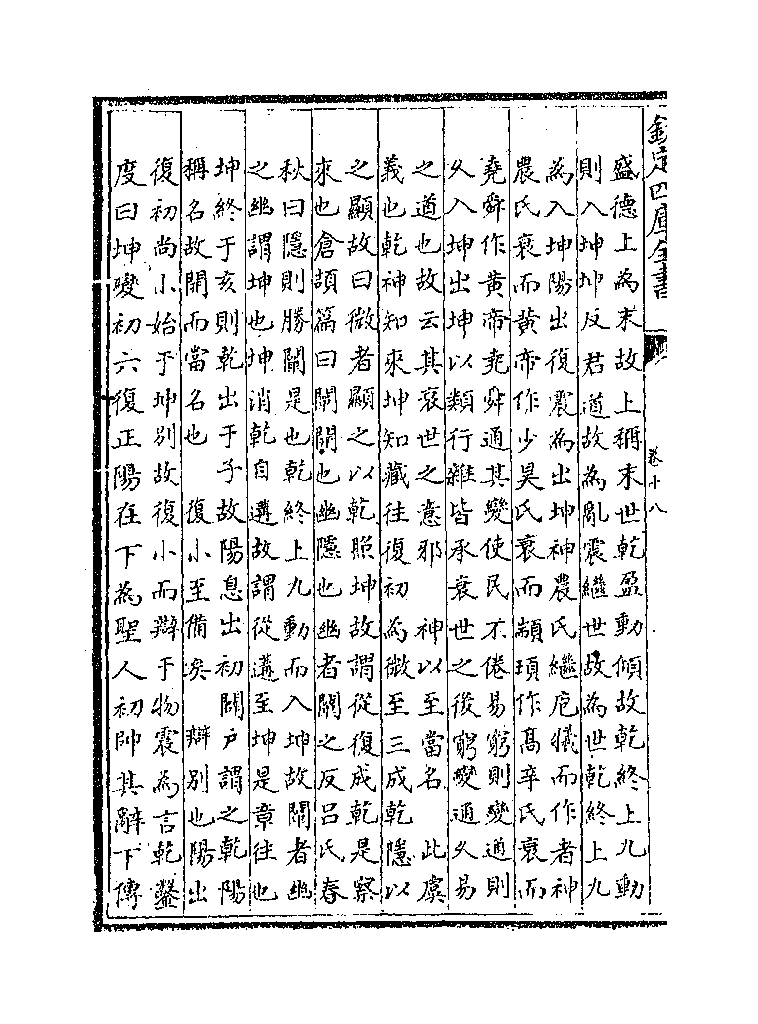 欽定四庫全書　卷十八
盛德上為末故上稱末世乾盈動傾故乾終上九動
則入坤坤反君道故為亂震繼世故為世乾終上九
為入坤陽出復震為出坤神農氏繼庖犧而作者神
農氏衰而黃帝作少昊氏衰而顓頊作髙辛氏衰而
堯舜作黄帝堯舜通其變使民不倦易窮則變通則
乆入坤出坤以類行雜皆承衰世之後窮變通乆易
之道也故云其衰世之意邪　神以至當名　此虞
義也乾神知來坤知藏往復初為微至三成乾隱以
之顯故曰微者顯之以乾照坤故謂從復成乾是察
來也倉頡篇曰闡開也幽隱也幽者闡之反吕氏春
秋曰隱則勝闡是也乾終上九動而入坤故闡者幽
之幽謂坤也坤消乾自遘故謂從遘至坤是章往也
坤終于亥則乾出于子故陽息出初闢户謂之乾陽
稱名故開而當名也　復小至備矣　辯別也陽出
復初尚小始于坤别故復小而辯于物震為言乾鑿
度曰坤變初六復正陽在下為聖人初帥其辭下傳